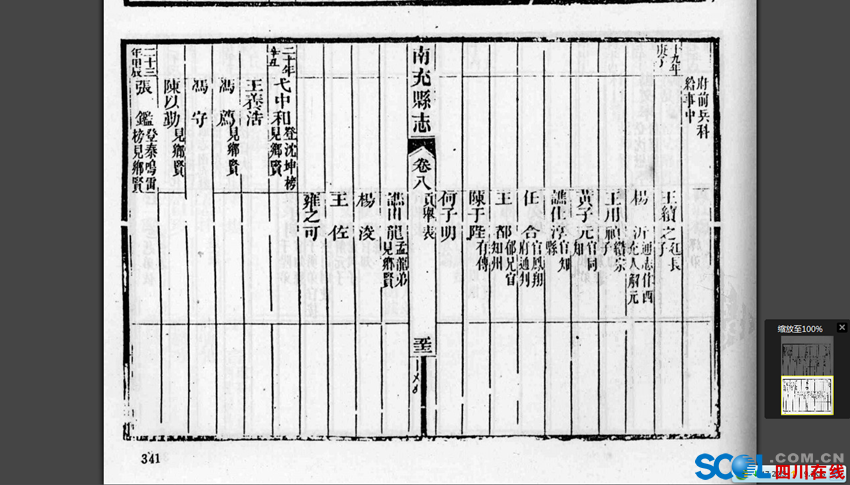 府前兵科
給事中
十九年
庚子
王續之
楊
通志作西
充人解元
王用禎
子
黃子元
官同
知
譙仕淳
官知
縣
任合
官鳳翔
府通判
王都
郁兄官
知州
陳于陛
有傳
何子明
南充縣志
卷八
貢舉表
譙田龍
孟龍弟
見鄉賢
楊浚
王佐
雍之可
二十年
辛丑
弋中和
登沈坤榜
見鄉賢
王養浩
馮薦
見鄉賢
馮守
陳以勤
見鄉賢
二十三
年甲辰
張鑑
登秦鳴雷
榜見鄉賢
341
缩放至100%
SCOL.COM.CN
四川在线